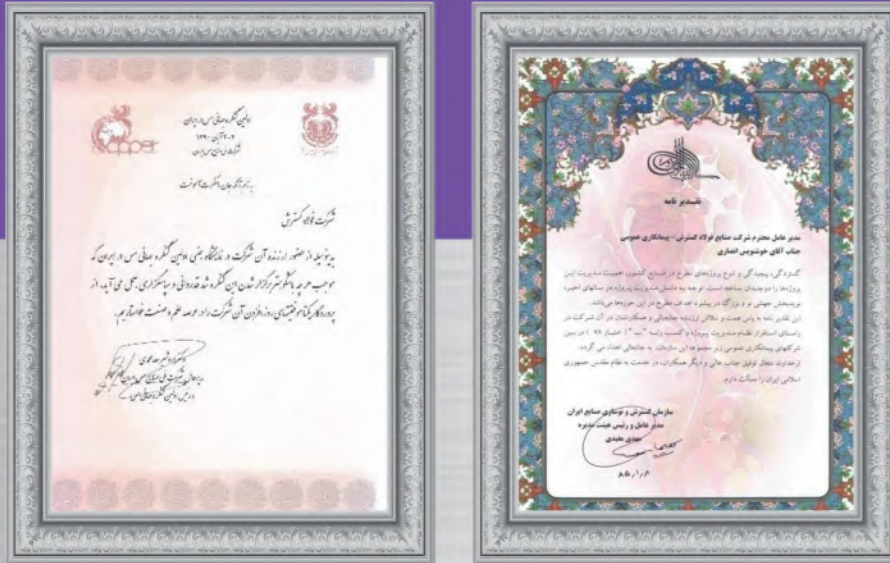 اولین کنگره جهانی مس در ایران
۲-۴ آبان ۱۳۹۰
شرکت ملی صنایع مس ایران
Copper
شرکت فولاد گسترش
بدینوسیله از حضور ارزنده آن شرکت در نمایشگاه جنبی اولین کنگره جهانی مس در ایران که
موجب هر چه باشکوهتر برگزار شدن این کنگره شد قدردانی و سپاسگزاری بعمل می آید. از
پروردگار یکتا موفقیتهای روزافزون آن شرکت را در عرصه علم و صنعت خواستاریم.
تقـدیر نامه
مدیر عامل محترم شرکت صنایع فولاد گسترش - پیمانکاری عمومی
جناب آقای خوشنویس انصاری
گستردگی، پیچیدگی و تنوع پروژه‌های مطرح در صنایع کشور، اهمیت مدیریت این
پروژه‌ها را دوچندان ساخته است. توجه به دانش مدیریت پروژه در سالهای اخیر،
نویدبخش جهشی نو و بزرگ در پیشبرد اهداف مطرح در این حوزه‌ها می‌باشد.
این تقدیر نامه به پاس همت و تلاش ارزنده جنابعالی و همکارانتان در آن شرکت در
راستای استقرار نظام مدیریت پروژه و کسب رتبه "ب ۱" امتیاز ۷۸ در بین
شرکتهای پیمانکاری عمومی زیر مجموعه این سازمان، به جنابعالی اهداء می گردد.
ازخداوند متعال توفیق جناب عالی و دیگر همکاران، در خدمت به نظام مقدس جمهوری
اسلامی ایران را مسألت دارم.
سازمان گسترش و نوسازی صنایع ایران
مدیر عامل و رئیس هیئت مدیره
مهدی مفیدی
۸۵/۱/۸